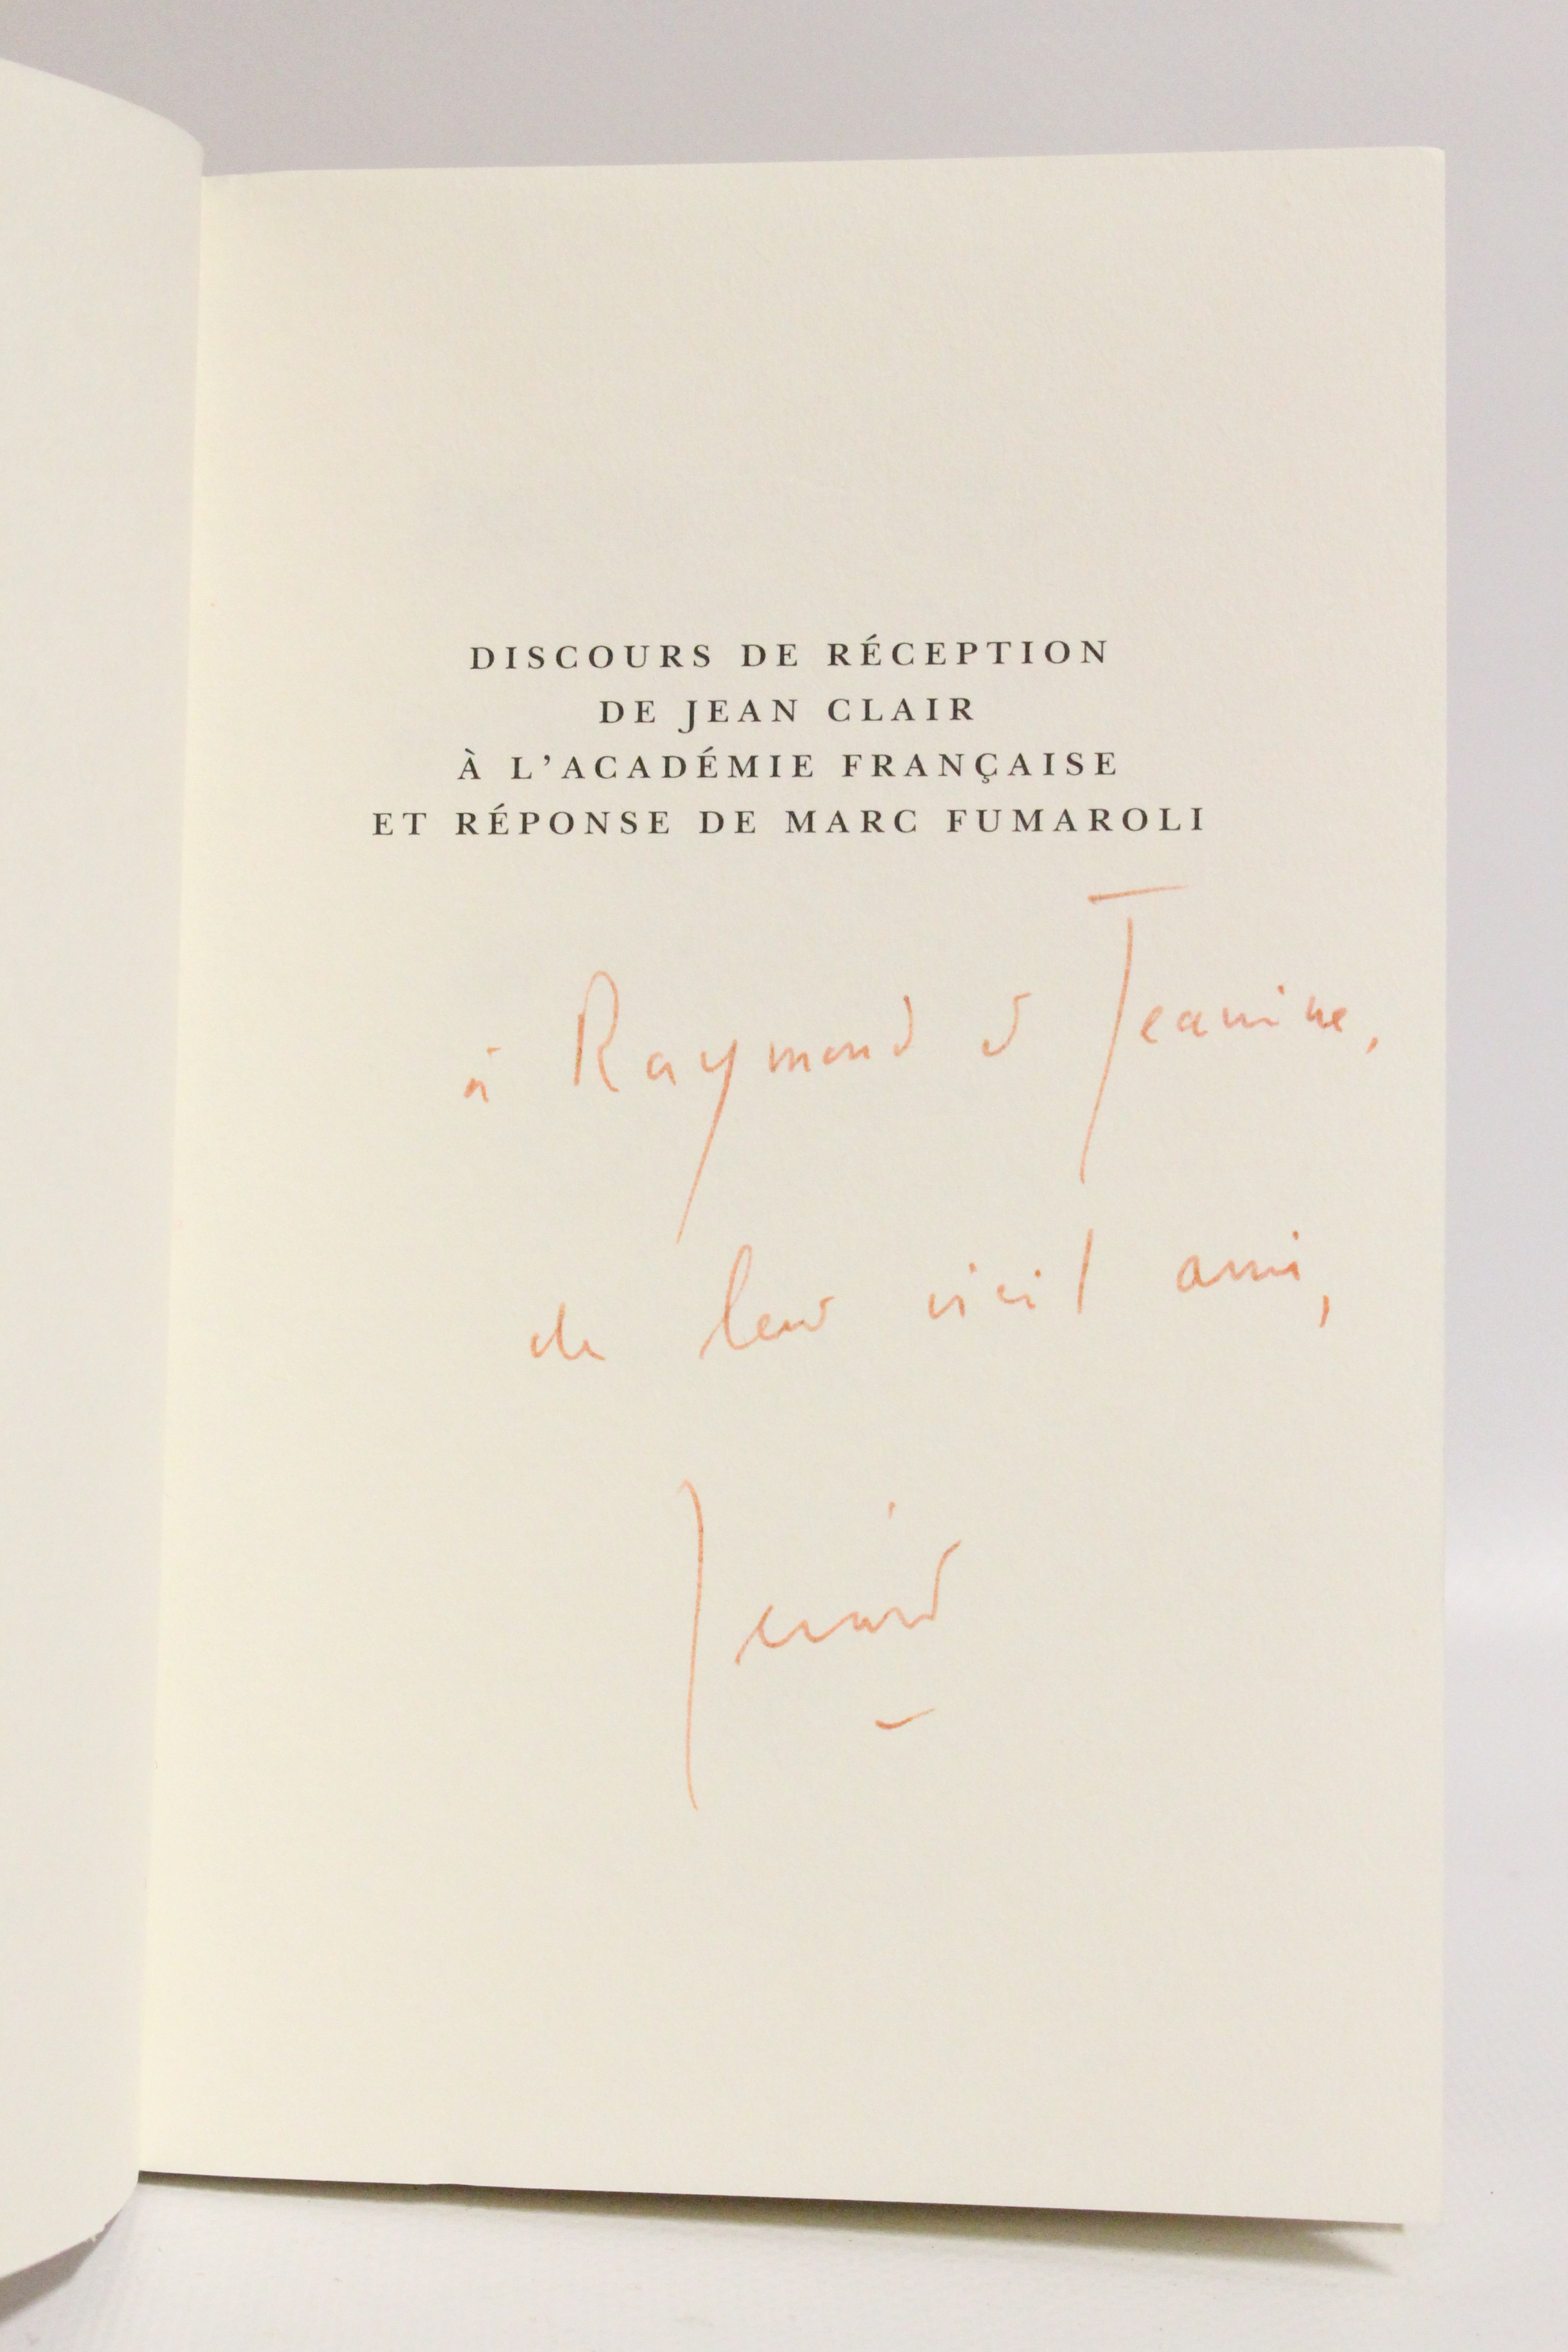 DISCOURS DE RÉCEPTION
DE JEAN CLAIR
À L'ACADÉMIE FRANÇAISE
ET RÉPONSE DE MARC FUMAROLI
à Raymond et Jeanine,
de leur vieil ami,